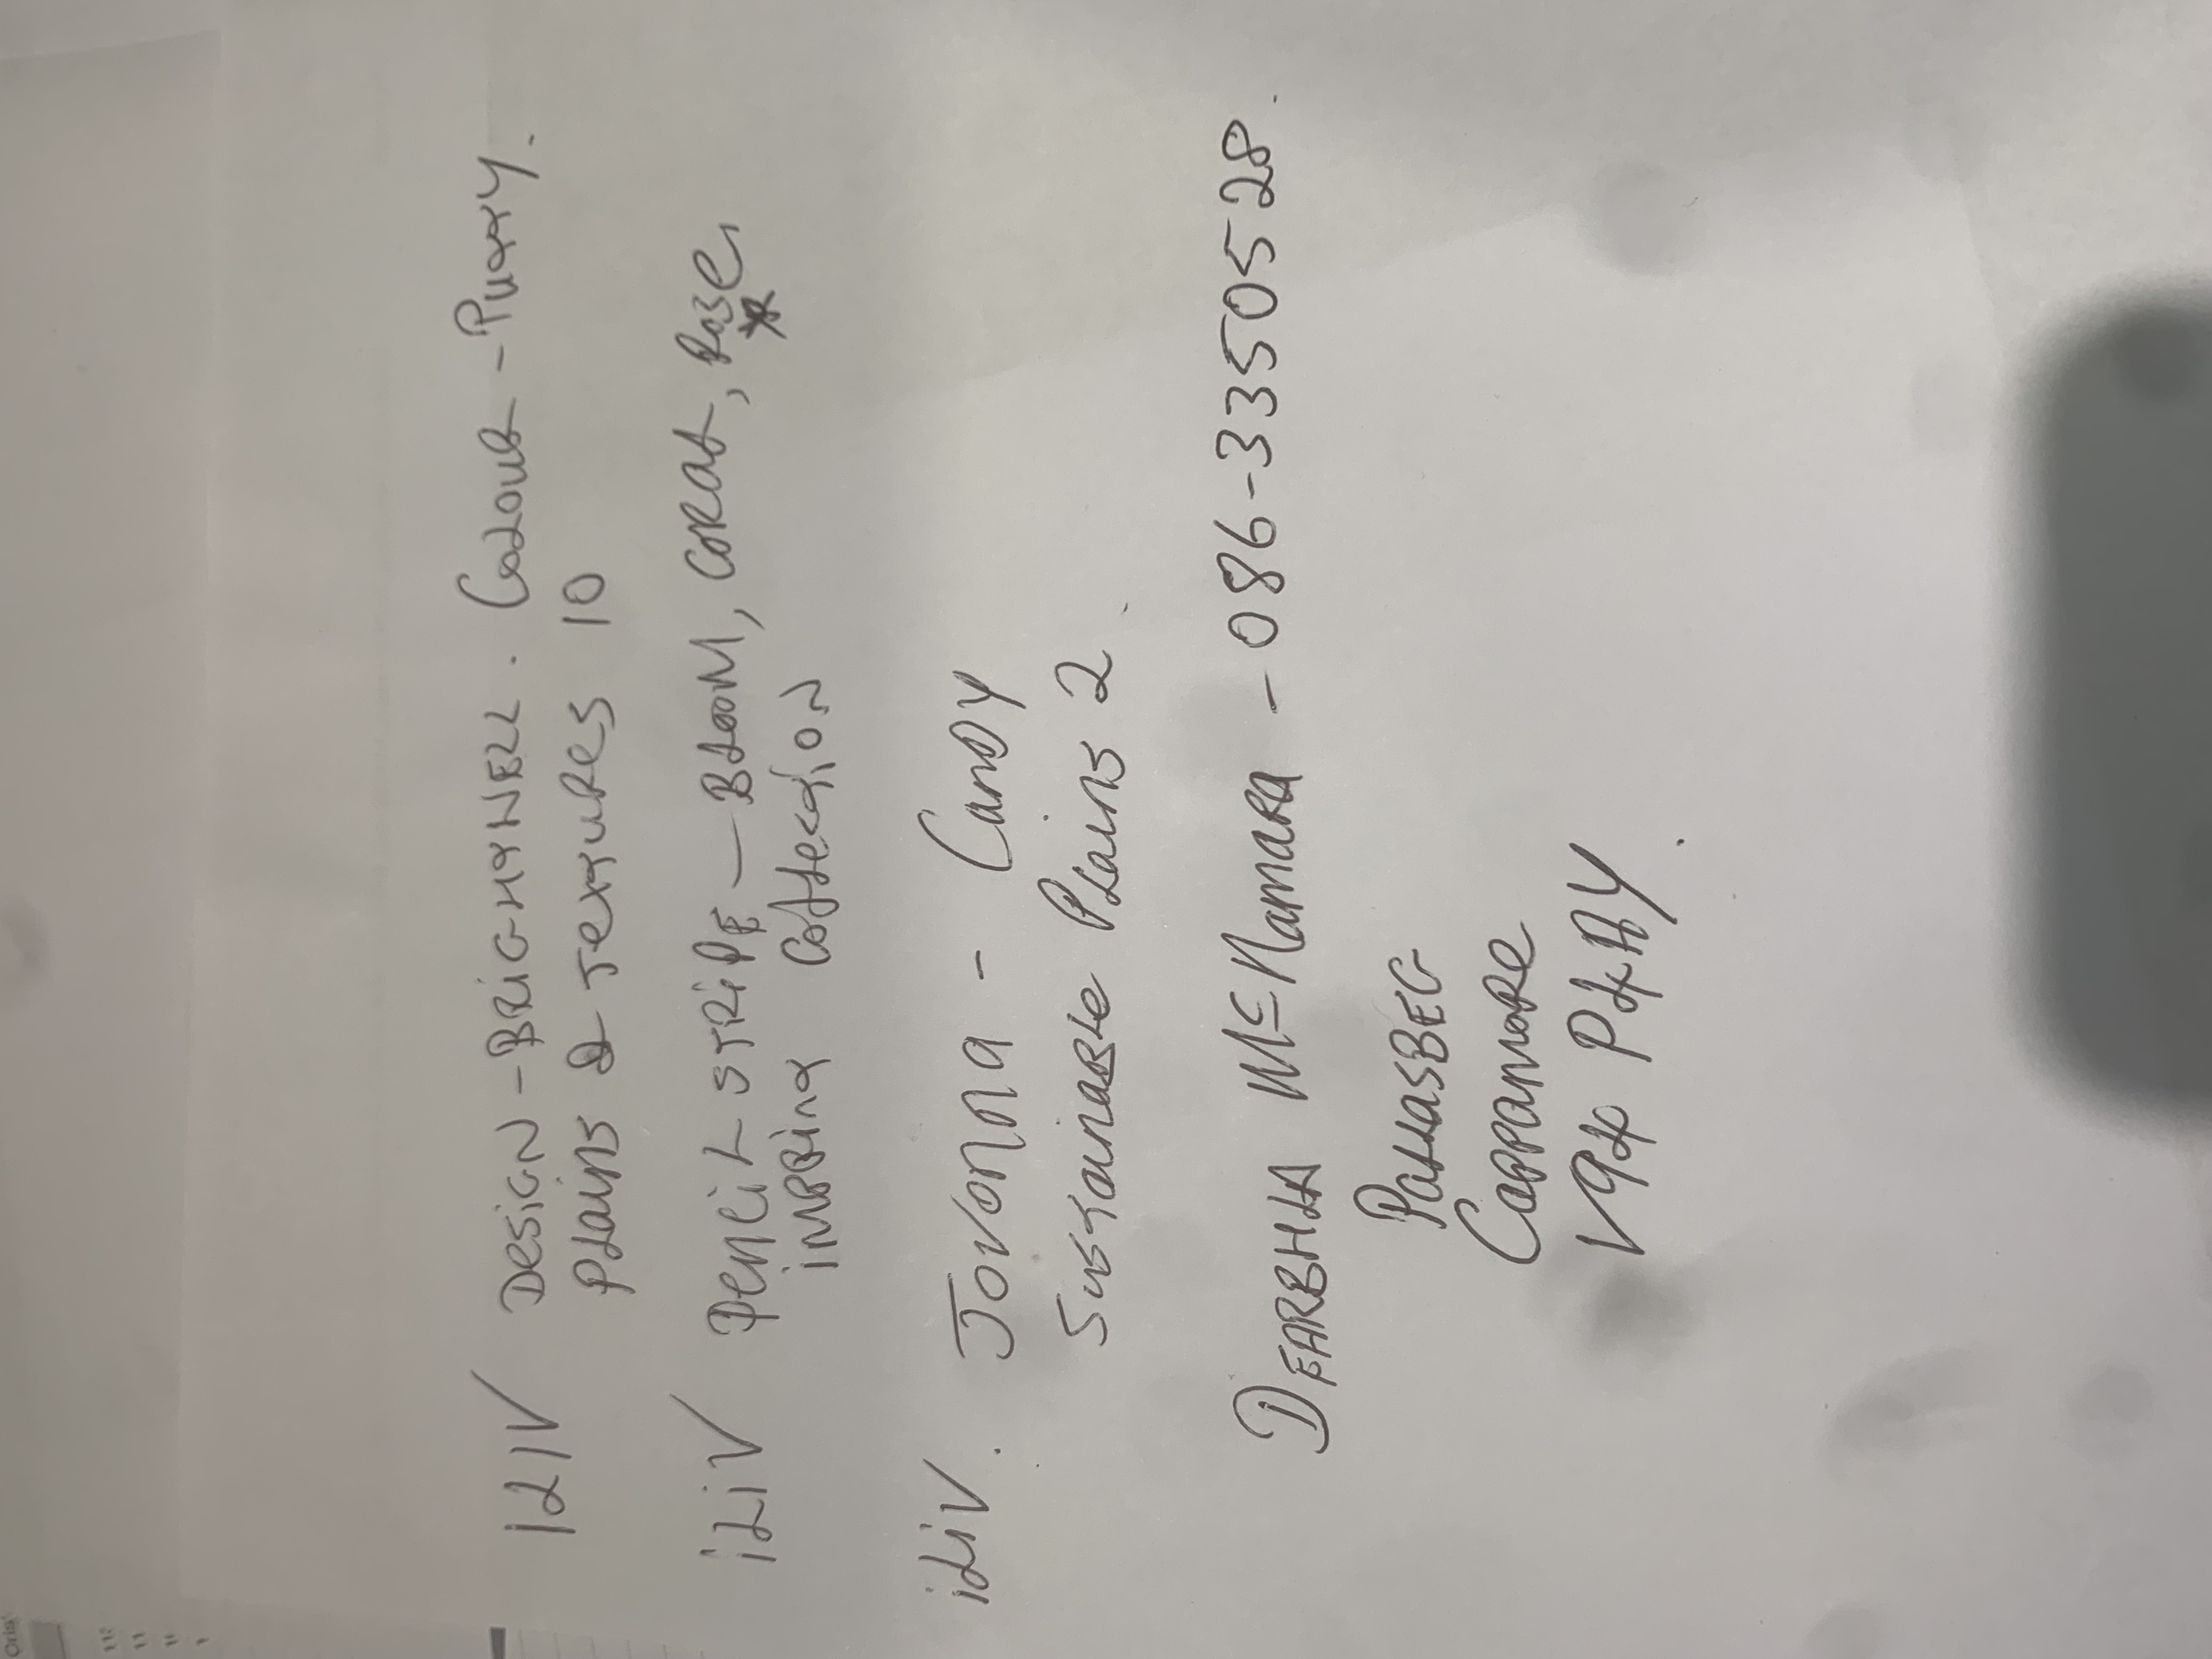 ILIV DESIGN - BRIGHWELL. COLOUR - PUTTY.
PLAINS & TEXTURES 10
iLiV PENCIL STRIPE - BLOOM, CORAL, ROSE,
IMPRINT COLLECTION
iLiV. JOVONNA - CANDY
SUSTAINABLE PLAINS 2
DEARBHLA McNAMARA - 086-3350528.
PALLASBEG
CAPPAMORE
V94 P4AY.